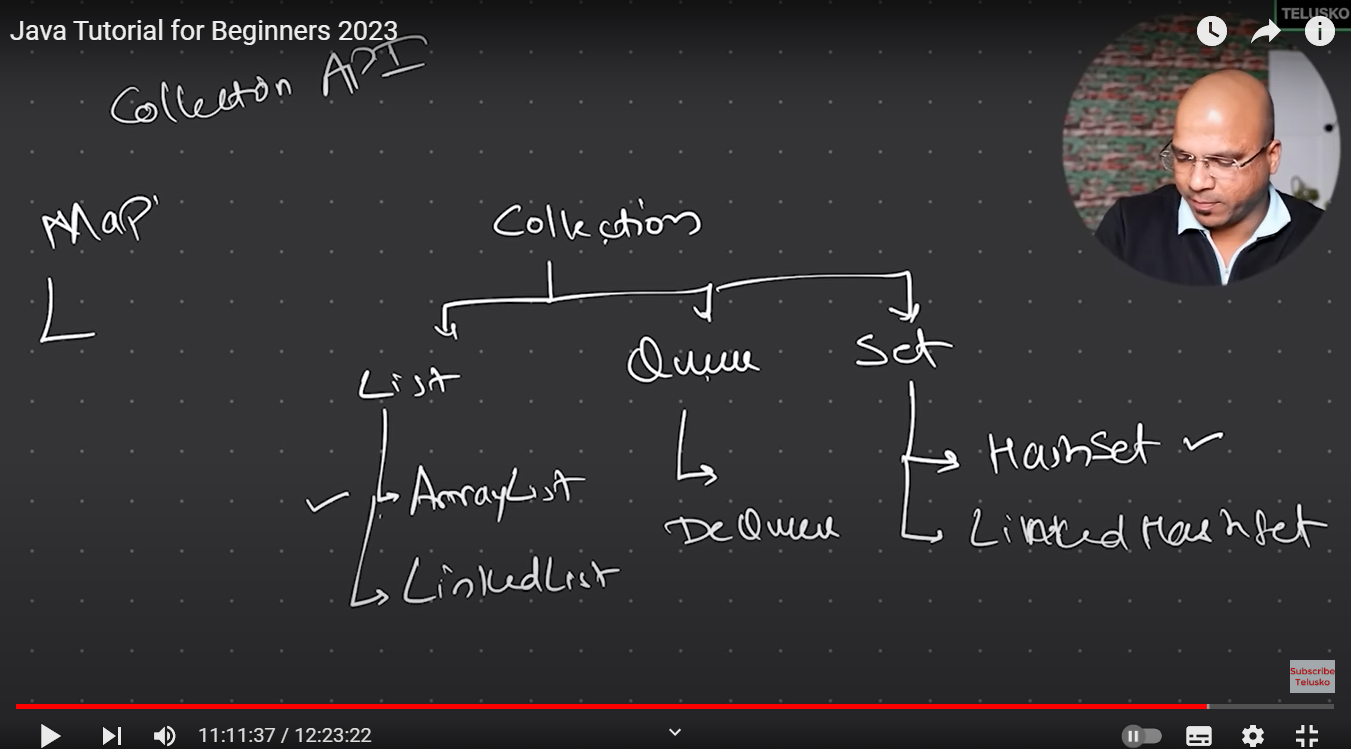 Java Tutorial for Beginners 2023
TELUSKO
Collection API
Map
Collections
List
Queue
Set
ArrayList
HashSet
DeQueue
LinkedHashSet
LinkedList
Subscribe
Telusko
11:11:37 / 12:23:22